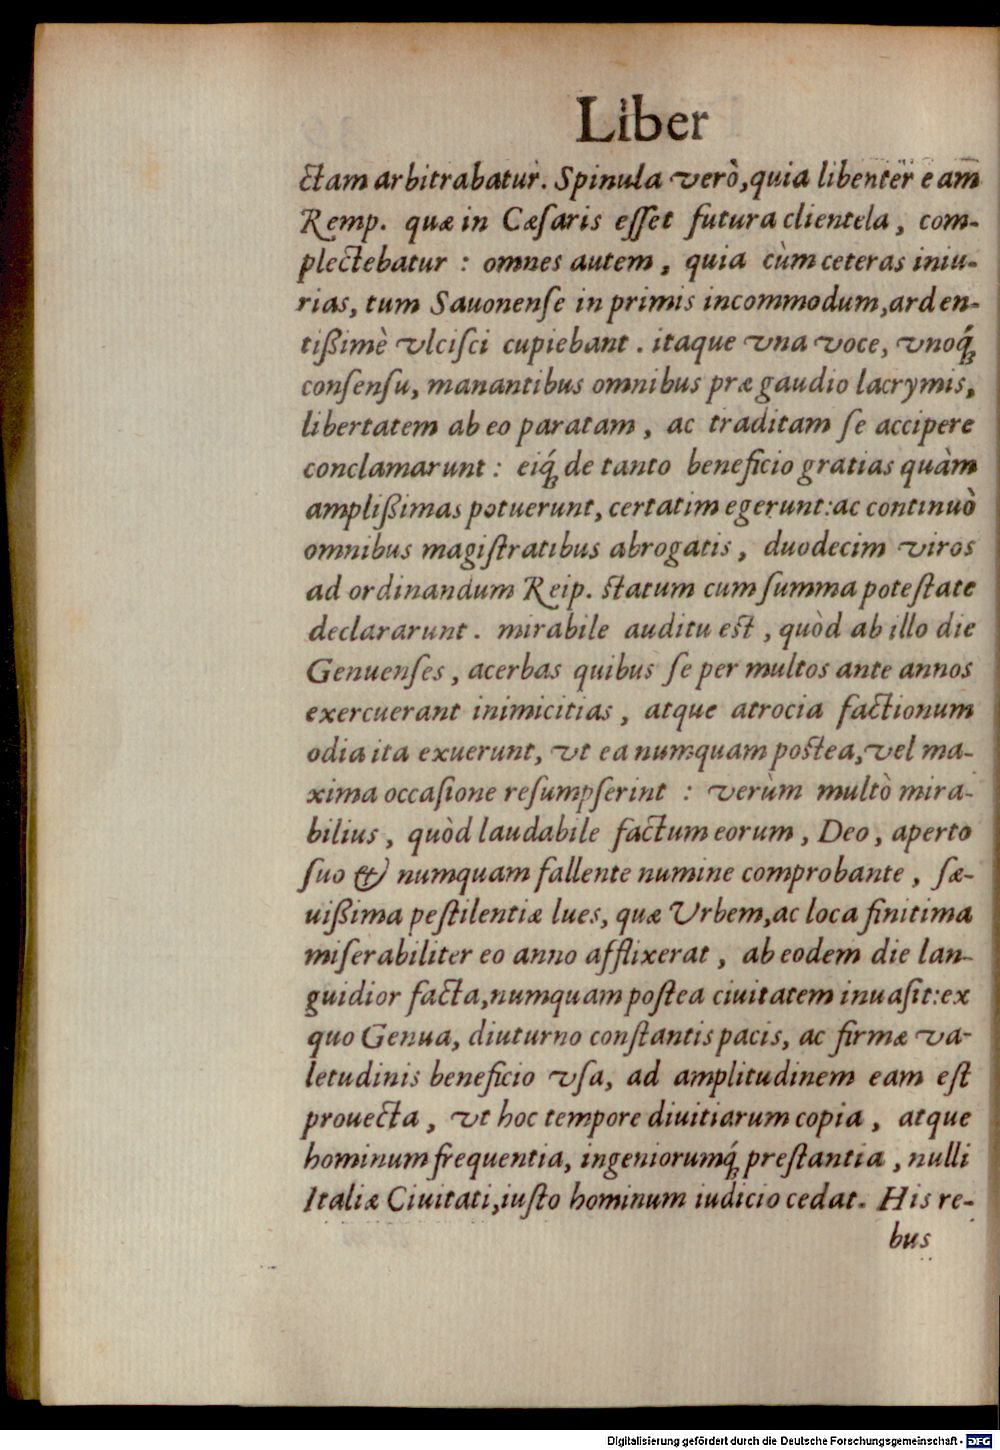 Liber
ctam arbitrabatur. Spinula verò, quia libenter eam
Remp. quæ in Cæſaris eſſet futura clientela, com-
plectebatur : omnes autem, quia cùm ceteras iniu-
rias, tum Sauonenſe in primis incommodum, arden-
tißimè vlciſci cupiebant. itaque vna voce, vnoq́;
conſenſu, manantibus omnibus præ gaudio lacrymis,
libertatem ab eo paratam, ac traditam ſe accipere
conclamarunt : eiq́; de tanto beneficio gratias quàm
amplißimas potuerunt, certatim egerunt: ac continuò
omnibus magiſtratibus abrogatis, duodecim viros
ad ordinandum Reip. ſtatum cum ſumma poteſtate
declararunt. mirabile auditu eſt, quòd ab illo die
Genuenſes, acerbas quibus ſe per multos ante annos
exercuerant inimicitias, atque atrocia factionum
odia ita exuerunt, vt ea numquam poſtea, vel ma-
xima occaſione reſumpſerint : verùm multò mira-
bilius, quòd laudabile factum eorum, Deo, aperto
ſuo & numquam fallente numine comprobante, ſæ-
uißima peſtilentiæ lues, quæ Vrbem, ac loca finitima
miſerabiliter eo anno afflixerat, ab eodem die lan-
guidior facta, numquam poſtea ciuitatem inuaſit: ex
quo Genua, diuturno conſtantis pacis, ac firmæ va-
letudinis beneficio vſa, ad amplitudinem eam eſt
prouecta, vt hoc tempore diuitiarum copia, atque
hominum frequentia, ingeniorumq́; preſtantia, nulli
Italiæ Ciuitati, iuſto hominum iudicio cedat. His re-
bus
Digitalisierung gefördert durch die Deutsche Forschungsgemeinschaft - DFG